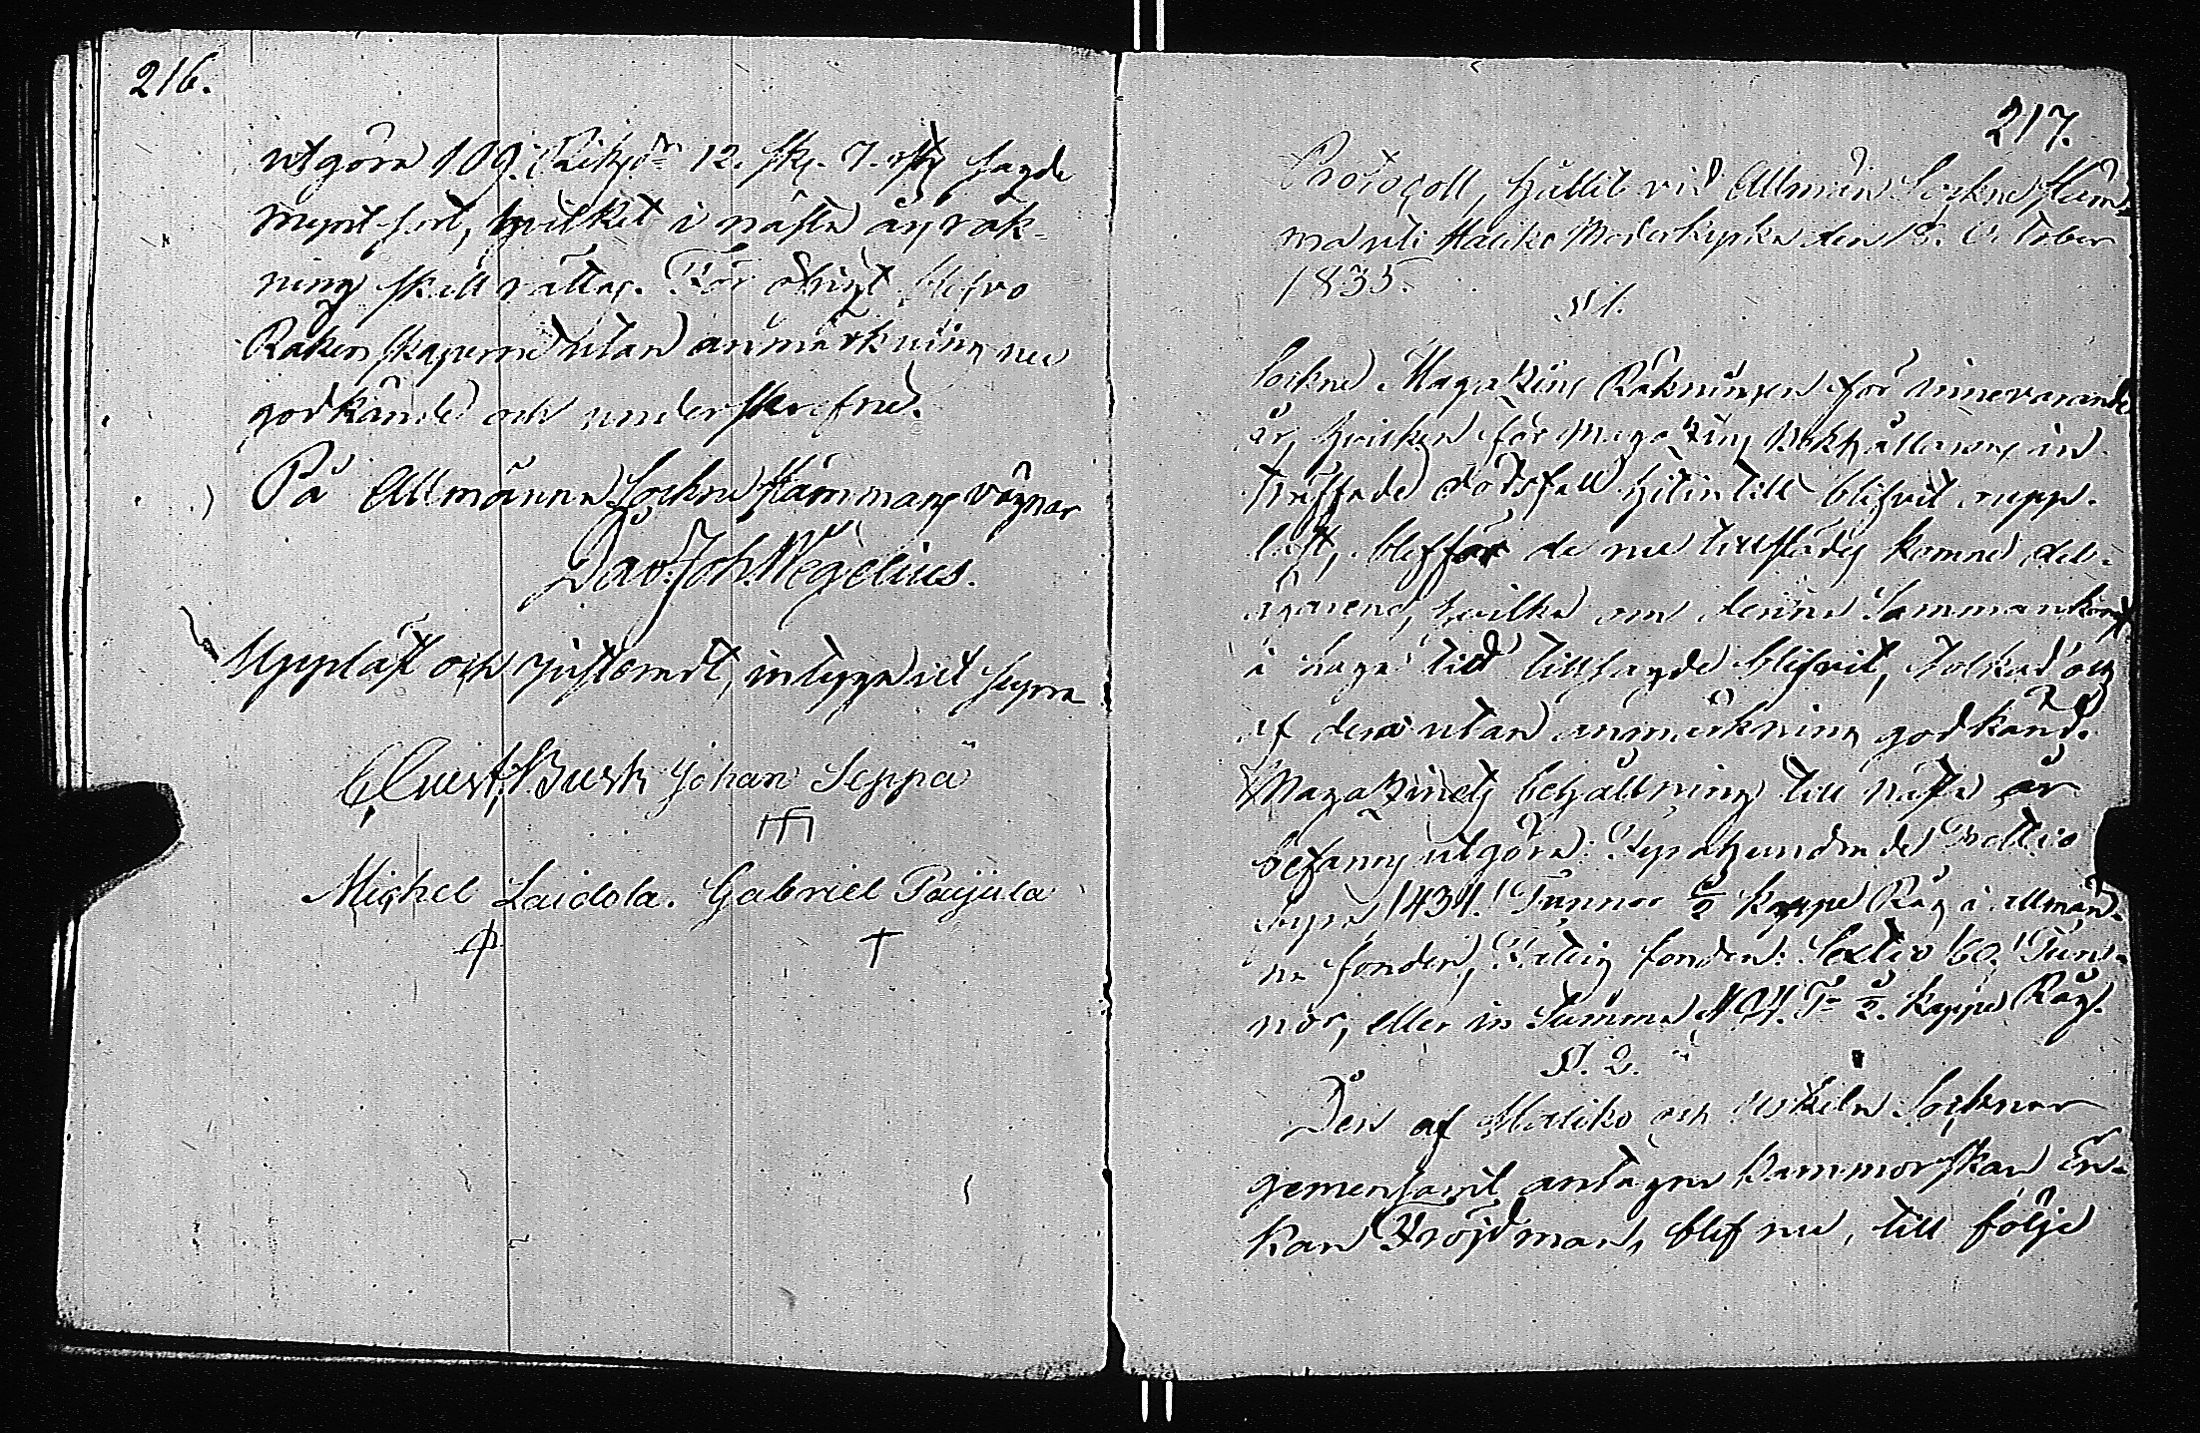 216.
utgöra 109. Riksdr 12. sk. 7. rst sagde
mynt sort, hvilket i nästa års räk-
ning skall rättas. För öfrigt blefvo
Räkenskaperne utan anmärkning nu
godkände och underskrefne.
På Allmänna Sockne Stämmans vägnar
Dav. Joh. Wegelius.
Uppläst och justeradt, intyga
Christ. Busk Johan Seppä
Michel Laidola. Gabriel Paijula
217.
Protocoll, hållit vid Allmän Sockne Stäm-
ma uti Haliko Moderkyrka den 18. October
1835.
§ 1.
Sockne Magazins Räkningen för innevarande
år, hvilken för Magazins Bokhållarens in-
träffade dödsfall hitintill blifvit upp-
, blef för de nu tillstädes komne del-
ägarena, hvilka om denna Sammankomst
i laga tid tillsagde blifvit, tolkad och
af dem utan anmärkning godkänd.
Magazinets behållning till nästa år
befanns utgöra: Fyrahundrade Trettio
fyra /434./ Tunnor ½ kappe Råg i allmän-
na fonden, Fattig fonden: Sextio /60./ Tun-
nor, eller in Summa 494. Tr ½. kappe Råg.
§. 2.
Den af Haliko och Uskela Socknar
gemensamt antagna Barnmorskan En-
kan Fröjdman, blef nu, till följe